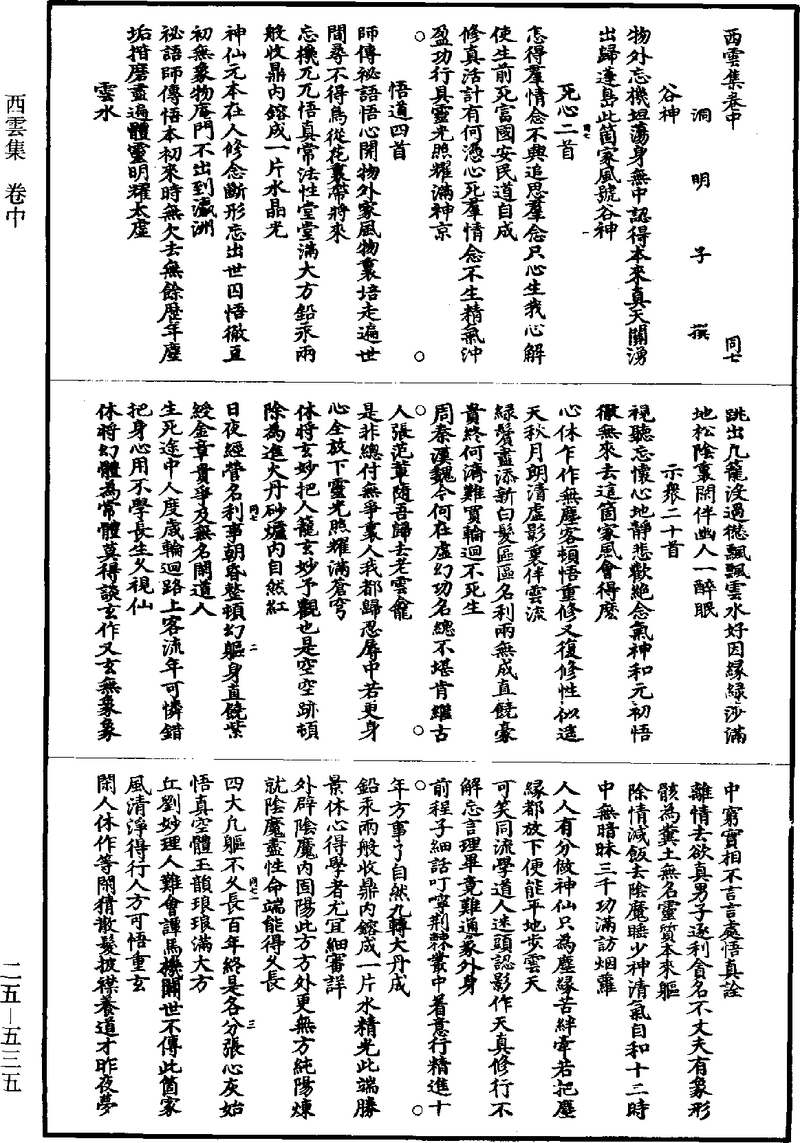 西雲集卷中
洞明子撰 同七
谷神
物外忘機坦蕩身無中認得本來真天關湧
出歸蓬島此箇家風號谷神
死心二首
怎得羣情念不興追思羣念只心生我心解
使生前死富國安民道自成
修真活計有何憑心死羣情念不生精氣沖
盈功行具靈光照耀滿神京
悟道四首
師傳祕語悟心開物外家風物裏培走遍世
間尋不得鳥從花裏帶將來
忘機兀兀悟真常法性堂堂滿大方鉛汞兩
般收鼎內鎔成一片水晶光
神仙元本在人修念斷形忘出世囚悟徹亘
初無象物庵門不出到瀛洲
祕語師傳悟本初來時無欠去無餘歷年塵
垢揩磨盡遍體靈明耀太虛
雲水
跳出凡籠沒過愆飄飄雲水好因緣綠莎滿
地松陰裏閑伴幽人一醉眠
示衆二十首
視聽忘懷心地靜悲歡絕念氣神和元初悟
徹無來去這箇家風會得麼
心休乍作無塵客頓悟重修又復修性似遠
天秋月朗清虛影裏伴雲流
綠鬢盡添新白髮區區名利兩無成直饒豪
貴終何濟難買輪迴不死生
周秦漢魏今何在虛幻功名總不堪肯繼古
人張范輩隨吾歸去老雲龕
是非總付無爭裏人我都歸忍辱中若更身
心全放下靈光照耀滿蒼穹
休將玄妙把人籠玄妙予觀也是空空跡頓
除為進火丹砂爐內自然紅
同七 二
日夜經營名利事朝昏整頓幻軀身直饒紫
綬金章貴爭及無名閑道人
生死途中人度歲輪迴路上客流年可憐錯
把身心用不學長生久視仙
休將幻體為常體莫得談玄作又玄無象象
中窮實相不言言處悟真詮
離情去欲真男子逐利貪名不丈夫有象形
骸為糞土無名靈質本來軀
除情減飯去陰魔睡少神清氣自和十二時
中無暗昧三千功滿訪烟蘿
人人有分做神仙只為塵緣苦絆牽若把塵
緣都放下便能平地步雲天
可笑同流學道人迷頭認影作天真修行不
解忘言理畢竟難通象外身
前程子細話叮嚀荊棘叢中着意行精進十
年方事了自然九轉大丹成
鉛汞兩般收鼎內鎔成一片水精光此端勝
景休心得學者尤宜細審詳
外辟陰魔內固陽此方方外更無方純陽煉
就陰魔盡性命端能得久長
同七 三
四大凡軀不久長百年終是各分張心灰始
悟真空體玉韻琅琅滿大方
丘劉妙理人難會譚馬機關世不傳此箇家
風清淨得行人方可悟重玄
閑人休作等閑猜散髮披襟養道才昨夜夢
西雲集 卷中
二五—五三五